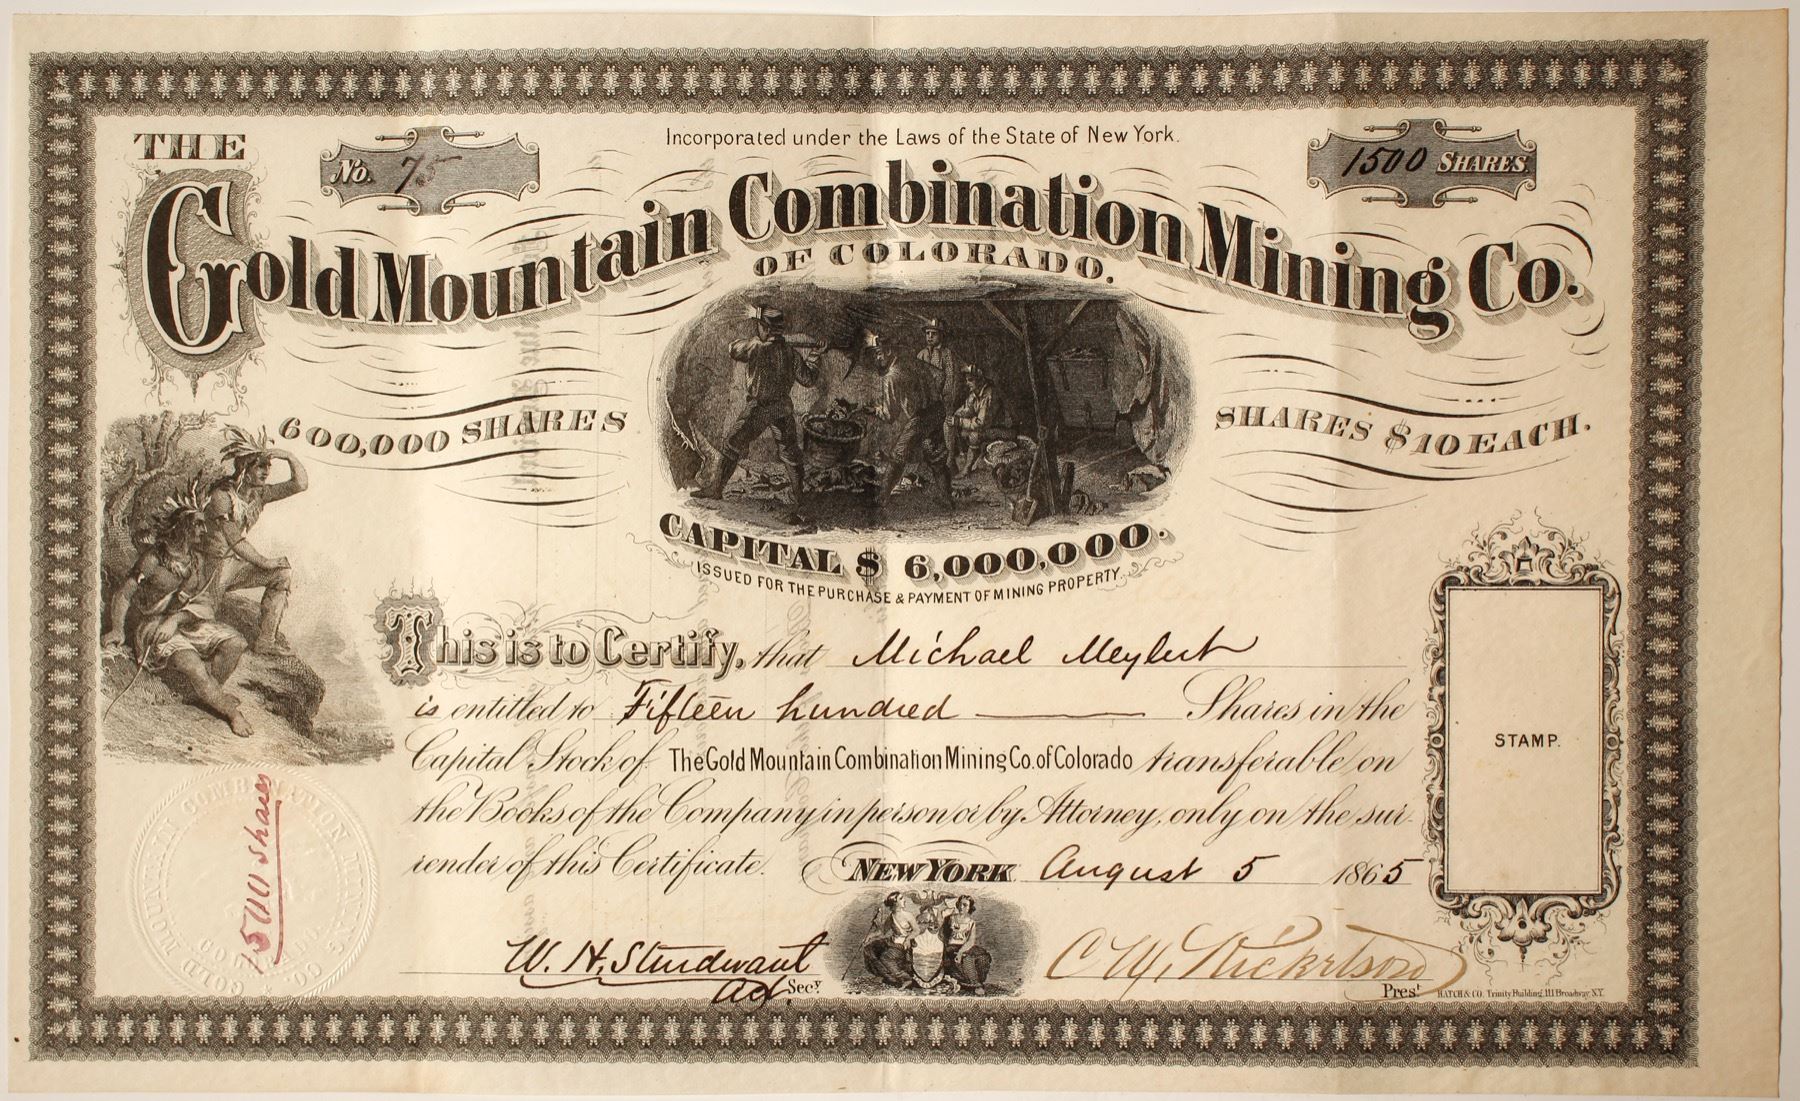 Incorporated under the Laws of the State of New York.
No. 75
1500 SHARES.
THE
Gold Mountain Combination Mining Co.
OF COLORADO.
600,000 SHARES
SHARES $10 EACH.
CAPITAL $ 6,000,000.
ISSUED FOR THE PURCHASE & PAYMENT OF MINING PROPERTY.
This is to Certify, that Michael Meylert
is entitled to Fifteen hundred Shares in the
Capital Stock of The Gold Mountain Combination Mining Co. of Colorado transferable on
the Books of the Company in person or by Attorney, only on the sur-
render of this Certificate. NEW YORK August 5 1865
STAMP.
GOLD MOUNTAIN COMBINATION MINING CO.
1500 shares
W. H. Sturdevant
Ad. Secy.
Prest.
HATCH & CO. Trinity Building, 111 Broadway, N.Y.